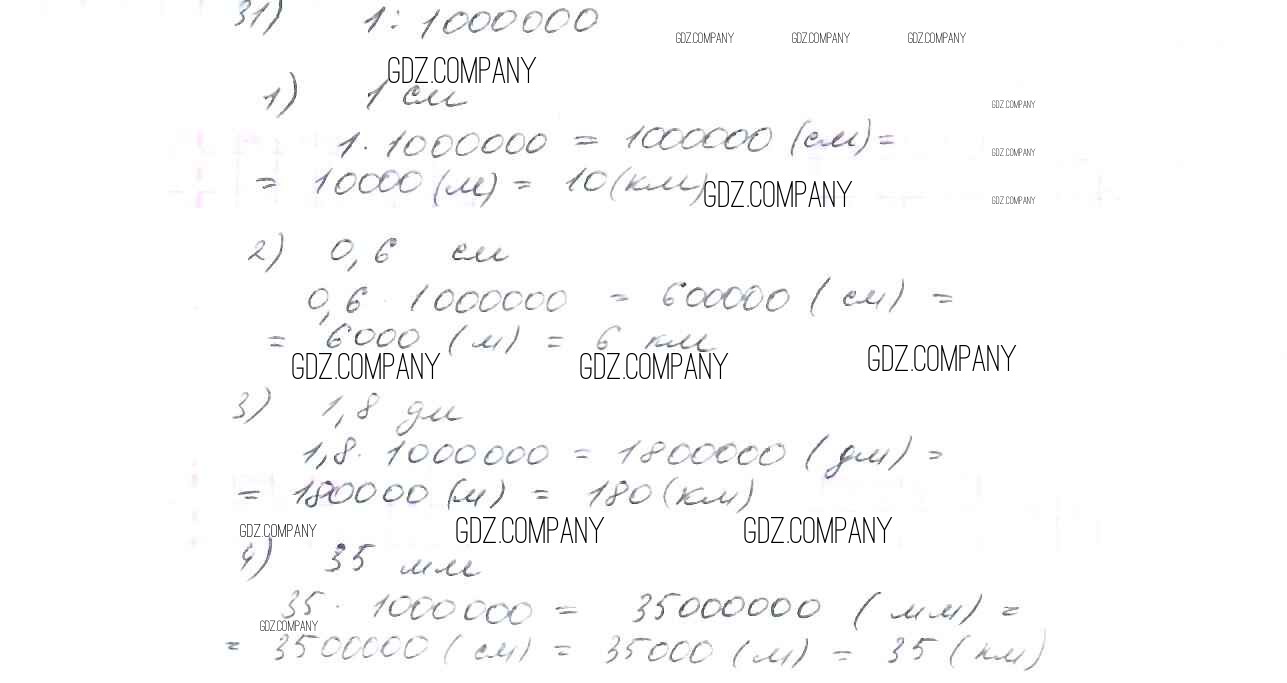 31) 1 : 1000000
GDZ.COMPANY GDZ.COMPANY GDZ.COMPANY
GDZ.COMPANY
1) 1 см
GDZ.COMPANY
1 · 1000000 = 1000000 (см) =
GDZ.COMPANY
= 10000 (м) = 10 (км)
GDZ.COMPANY
GDZ.COMPANY
2) 0,6 см
0,6 · 1000000 = 600000 (см) =
= 6000 (м) = 6 км
GDZ.COMPANY GDZ.COMPANY GDZ.COMPANY
3) 1,8 дм
1,8 · 1000000 = 1800000 (дм) =
= 180000 (м) = 180 (км)
GDZ.COMPANY GDZ.COMPANY GDZ.COMPANY
4) 35 мм
35 · 1000000 = 35000000 (мм) =
GDZ.COMPANY
= 3500000 (см) = 35000 (м) = 35 (км)